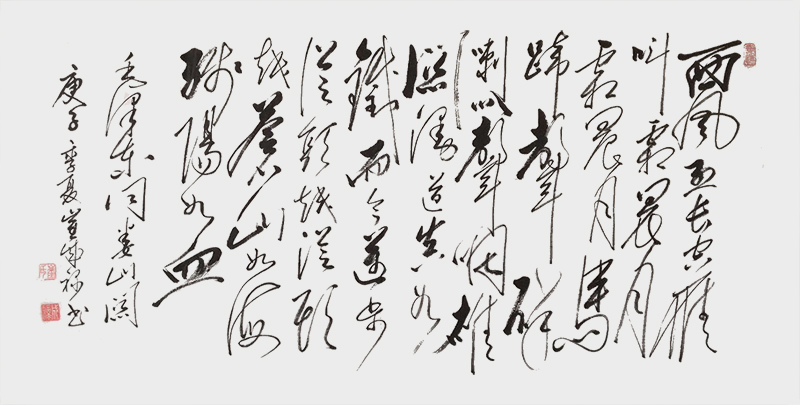 西風烈長空雁
叫霜晨月
霜晨月馬
蹄聲碎
喇叭聲咽雄
關漫道真如
鐵而今邁步
從頭越從頭
越蒼山如海
殘陽如血
毛澤東詞婁山關
庚子季夏書